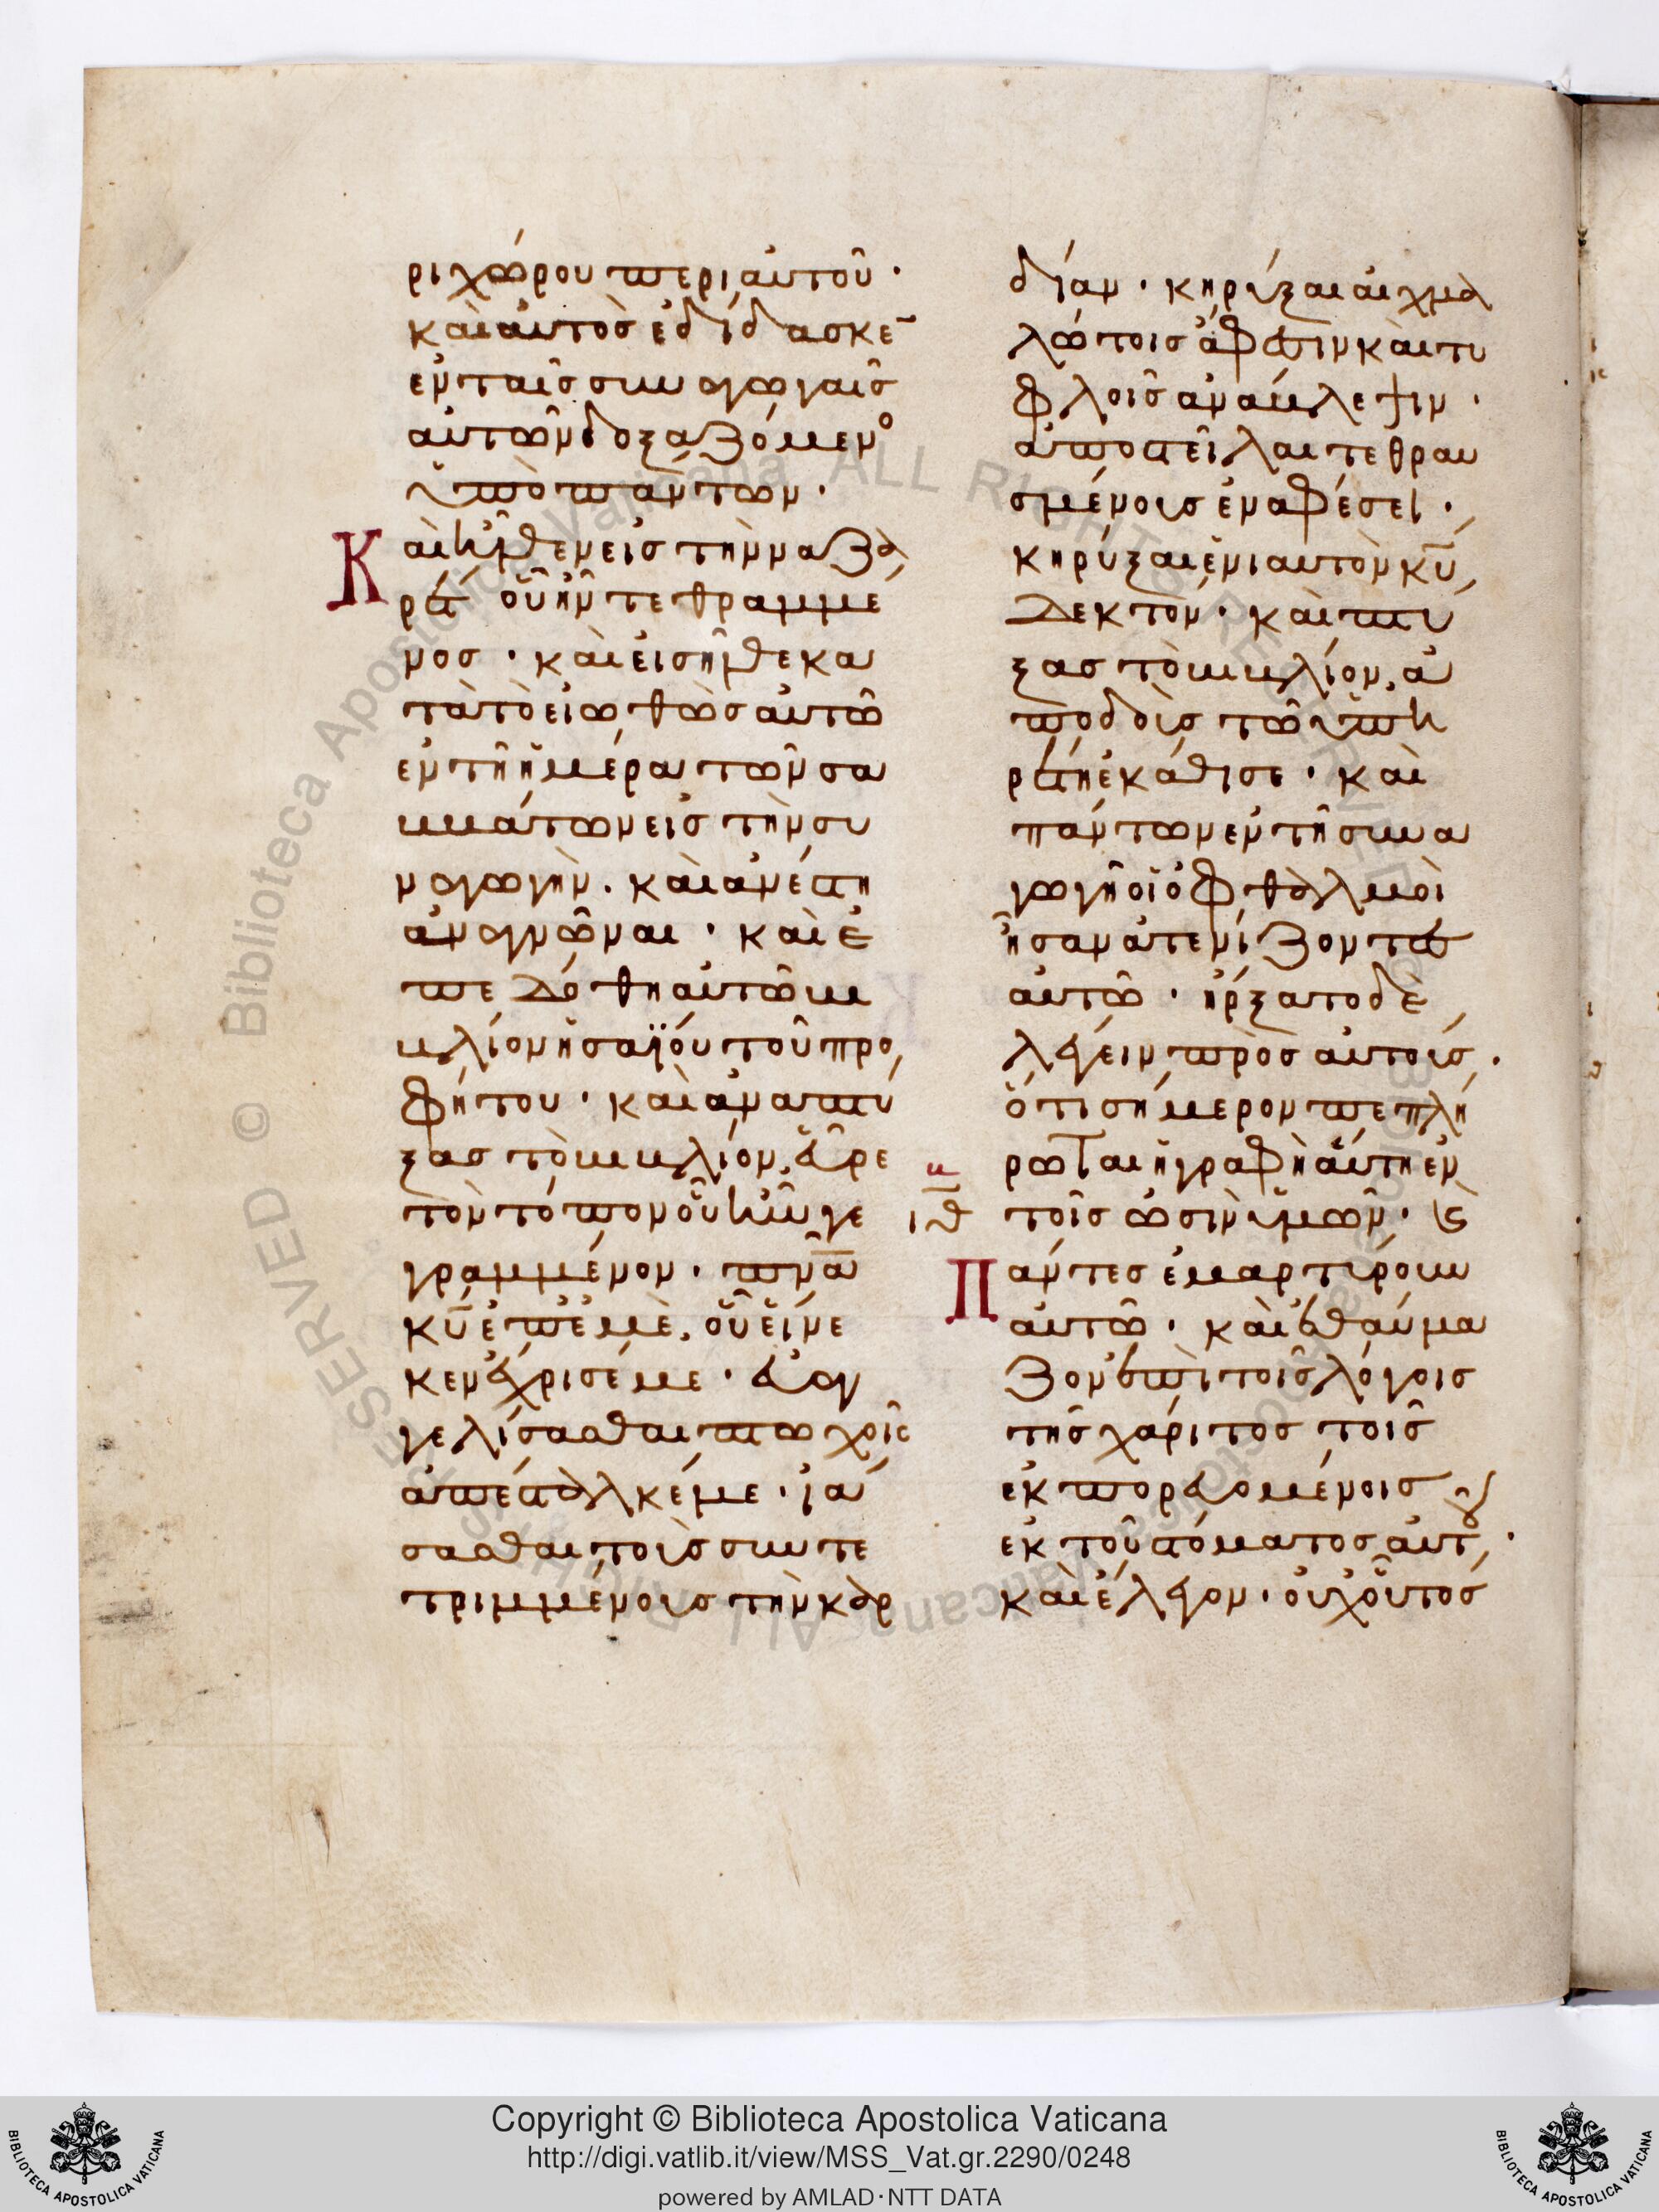 ριχώρου περι αυτοῦ·
καὶ αυτὸς ἐδίδασκε̅
ἐν ταῖς συναγωγαῖς
αὐτῶν δοξαζόμενο
ὑπὸ πάντων·
Καὶ ἦλθεν εἰς τὴν ναζα
ρέτ οὗ ἦν τεθραμμε
νος· καὶ εἰσῆλθε κα
τὰ τὸ εἰωθὼς αὐτῶ
ἐν τῆ ἡμέρα τῶν σα
ββάτων εἰς τὴν συ
ναγωγήν. καὶ ἀνέστη
ἀναγνῶναι· καὶ ἐ
πεδόθη αὐτῶ βι
βλίον ἠσαΐου τοῦ προ
φήτου· καὶ ἀναπτυ
ξας τὸ βιβλίον, εὗρε
τὸν τόπον οὗ ἦν γε
γραμμένον· πν̅α̅
κ̅υ̅ ἐπ ἐμὲ, οὗ εἵνε
κεν ἔχρισέ με· εὐαγ
γελίσασθαι πτωχοῖς
ἀπέσταλκέ με· ἰά
σασθαι τοὺς συντε
τριμμένους τὴν καρ
δίαν· κηρύξαι αἰχμα
λώτοις ἄφεσιν καὶ τυ
φλοῖς ἀνάβλεψιν·
ἀποστεῖλαι τεθραυ
σμένους ἐν αφέσει·
κηρύξαι ἐνιαυτὸν κ̅υ̅
δεκτόν· καὶ πτυ
ξας τὸ βιβλίον, ἀ
ποδοὺς τῶ ὑπη
ρέτη ἐκάθισε· καὶ
πάντων ἐν τῆ συνα
γωγῆ οἱ ὀφθαλμοὶ
ἦσαν ἀτενίζοντες
αὐτῶ· ἤρξατο δὲ
λέγειν πρὸς αὐτούς·
ὅτι σήμερον πεπλή
ρωται ἡ γραφὴ αὕτη ἐν
ιθ
β
τοῖς ὠσὶν ὑμῶν· καὶ
Πάντες ἐμαρτύρουν
αὐτῶ· καὶ ἐθαύμα
ζον ἐπὶ τοῖς λόγοις
τῆς χάριτος τοῖς
ἐκπορευομένοις
ἐκ τοῦ στόματος αὐτοῦ·
καὶ ἔλεγον· οὐχ οὗτος
© Biblioteca Apostolica Vaticana ALL RIGHTS RESERVED
Copyright © Biblioteca Apostolica Vaticana
http://digi.vatlib.it/view/MSS_Vat.gr.2290/0248
powered by AMLAD·NTT DATA
BIBLIOTECA APOSTOLICA VATICANA
BIBLIOTECA APOSTOLICA VATICANA